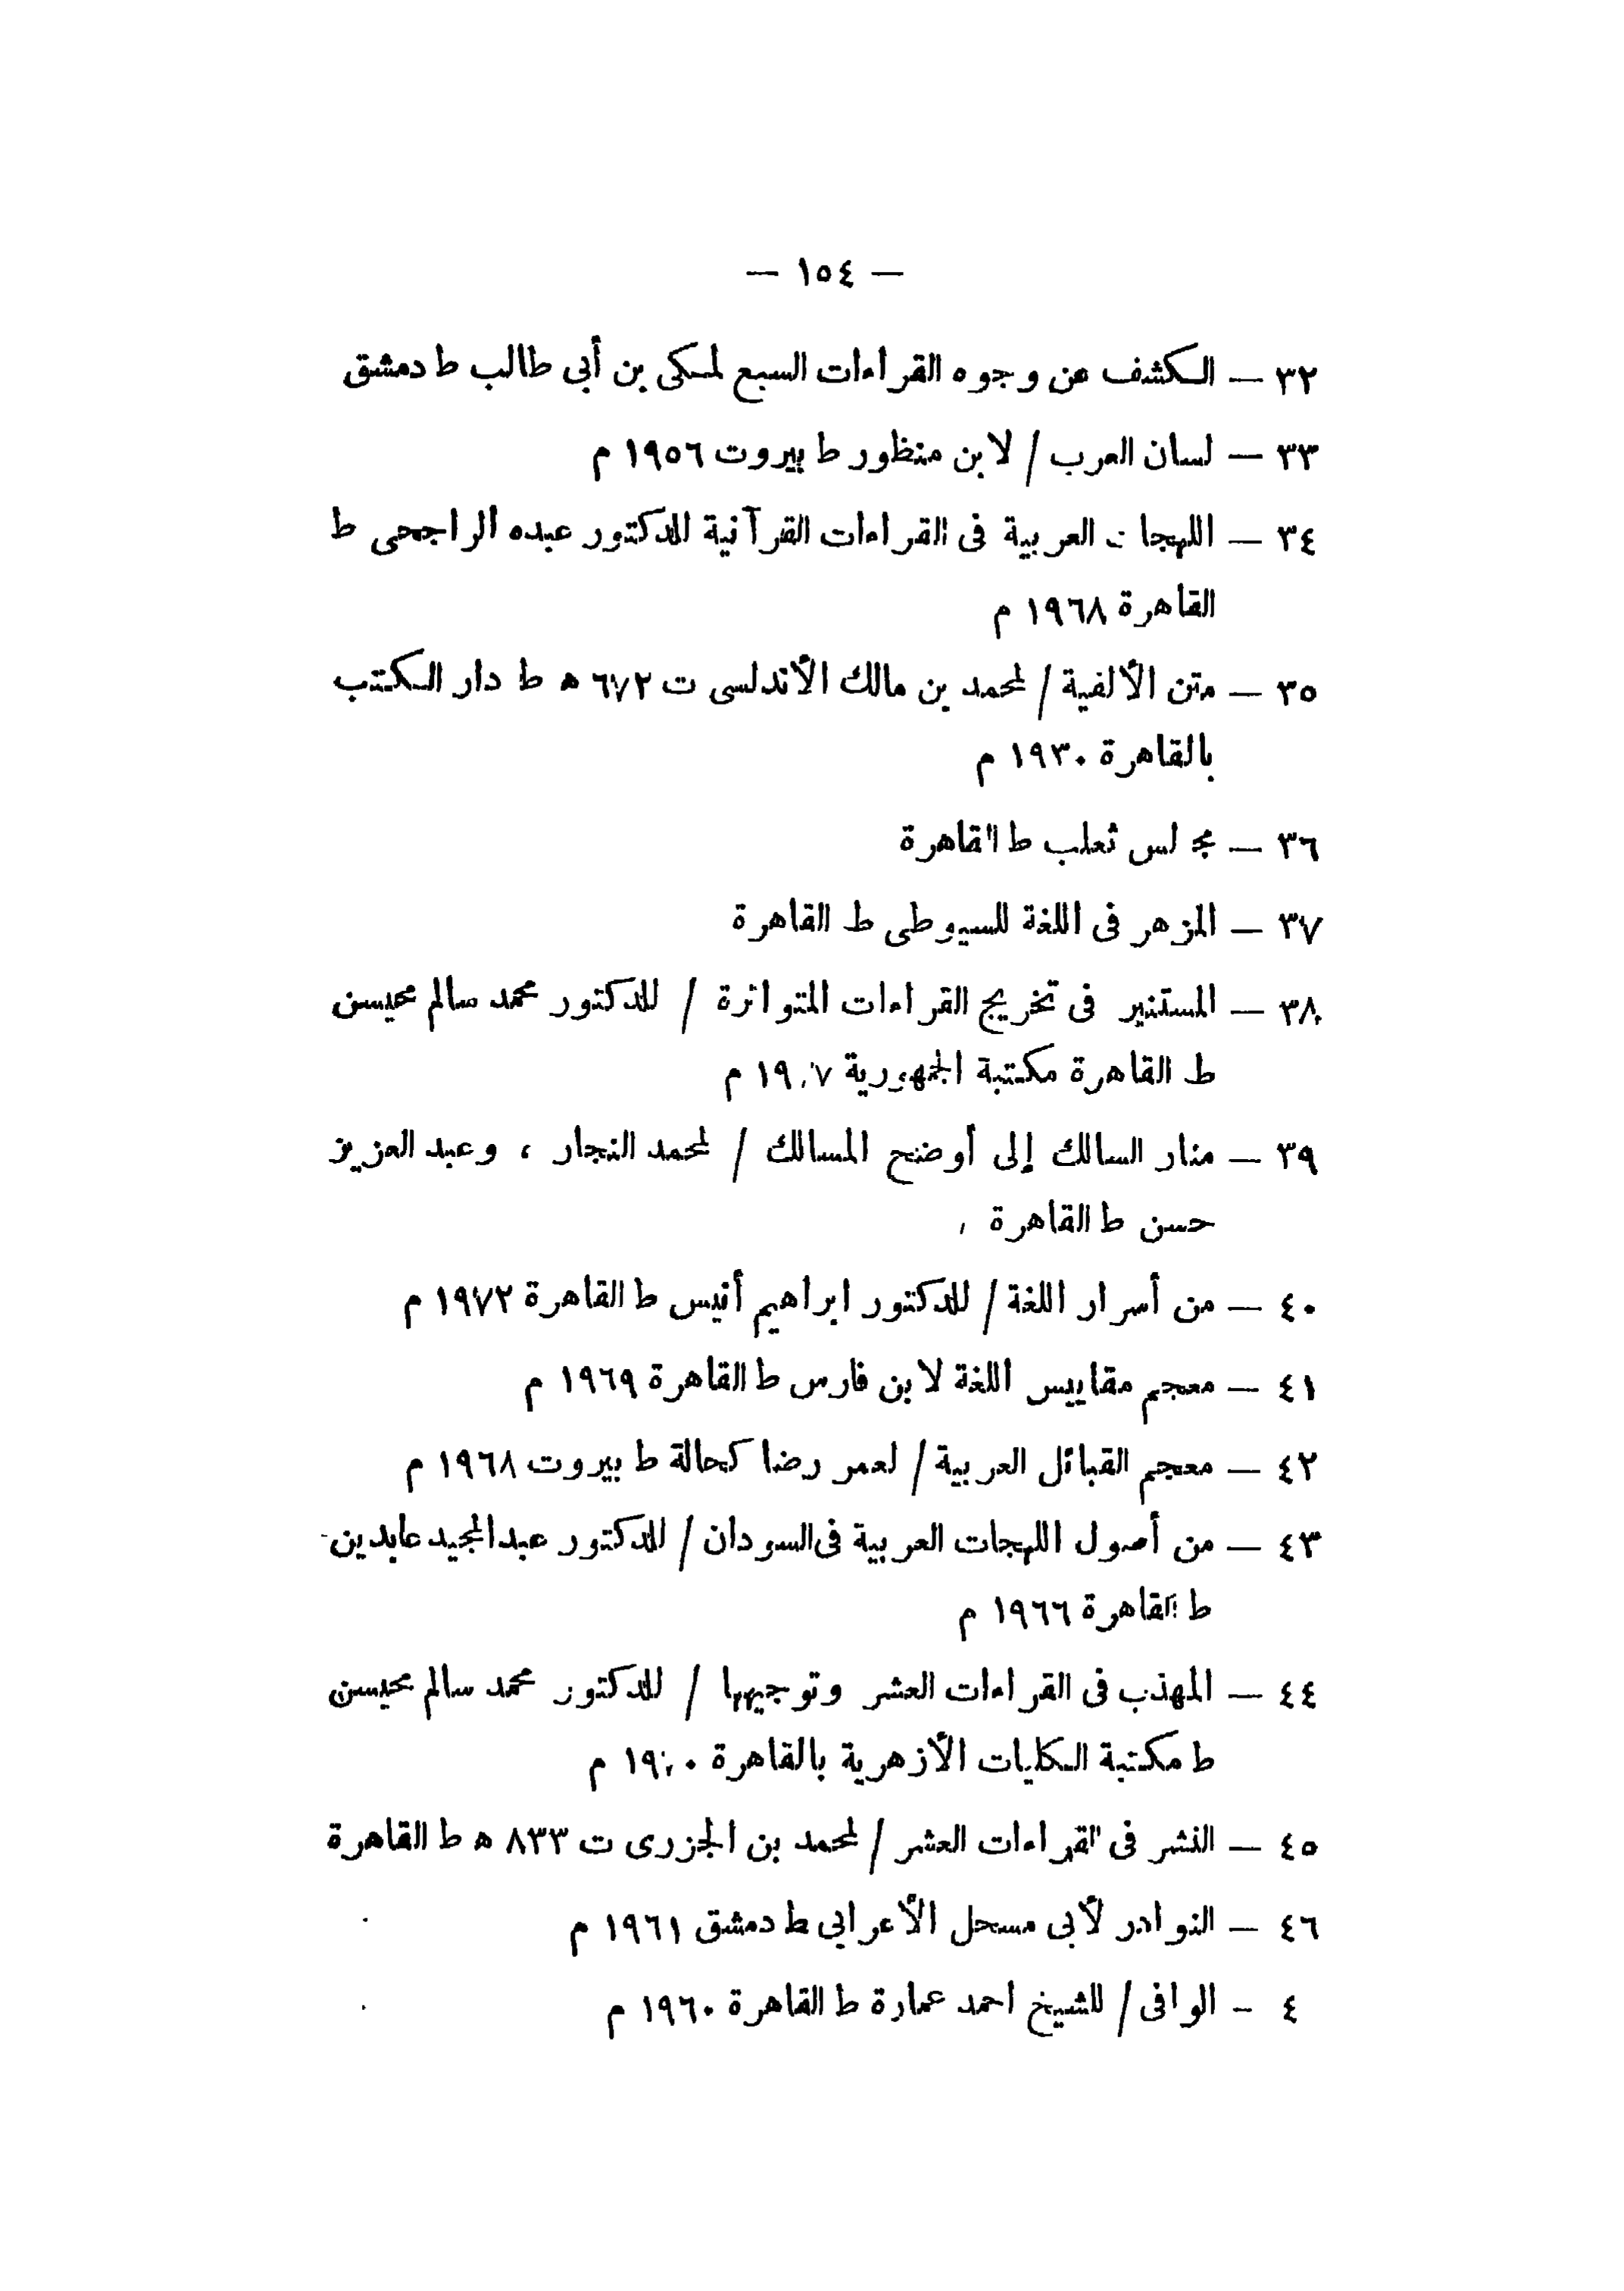 — ١٥٤ —
٣٢ — الكشف عن وجوه القراءات السبع لمكى بن أبى طالب ط دمشق
٣٣ — لسان العرب / لابن منظور ط بيروت ١٩٥٦ م
٣٤ — اللهجات العربية فى القراءات القرآنية للدكتور عبده الراجحى ط
القاهرة ١٩٦٨ م
٣٥ — متن الألفية / لمحمد بن مالك الأندلسى ت ٦٧٢ ه ط دار الكتب
بالقاهرة ١٩٣٠ م
٣٦ — مجالس ثعلب ط القاهرة
٣٧ — المزهر فى اللغة للسيوطى ط القاهرة
٣٨ — المستنير فى تخريج القراءات المتواترة / للدكتور محمد سالم محيسن
ط القاهرة مكتبة الجمهورية م
٣٩ — منار السالك إلى أوضح المسالك / لمحمد النجار ، وعبد العزيز
حسن ط القاهرة
٤٠ — من أسرار اللغة / للدكتور ابراهيم أنيس ط القاهرة ١٩٧٢ م
٤١ — معجم مقاييس اللغة لابن فارس ط القاهرة ١٩٦٩ م
٤٢ — معجم القبائل العربية / لعمر رضا كحالة ط بيروت ١٩٦٨ م
٤٣ — من أصول اللهجات العربية فى السودان / للدكتور عبد المجيد عابدين
ط القاهرة ١٩٦٦ م
٤٤ — المهذب فى القراءات العشر وتوجيهها / للدكتور محمد سالم محيسن
ط مكتبة الكليات الأزهرية بالقاهرة م
٤٥ — النشر فى القراءات العشر / لمحمد بن الجزرى ت ٨٣٣ ه ط القاهرة
٤٦ — النوادر لأبى مسحل الأعرابى ط دمشق ١٩٦١ م
٤ - الوافى / للشيخ احمد عمارة ط القاهرة ١٩٦٠ م